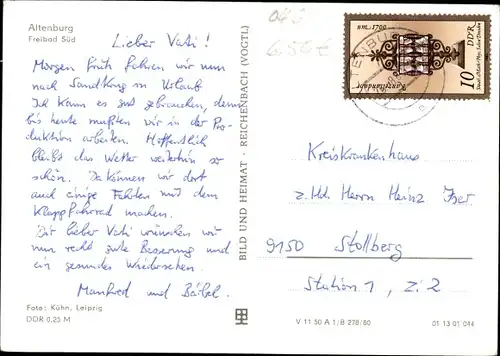 Altenburg
Freibad Süd
Lieber Vati!
Morgen früh fahren wir nun
nach in Urlaub
Ich kann es gut gebrauchen, denn
bis heute mußten wir in der Pro-
duktion arbeiten. Hoffentlich
bleibt das Wetter weiterhin so
schön. Da können wir dort
auch einige Fahrten mit dem
Klappfahrrad machen.
Dir lieber Vati wünschen wir
nun recht gute Besserung und
ein gesundes Wiedersehen.
Manfred und Bärbel.
Foto: Kühn, Leipzig
DDR 0,25 M
BILD UND HEIMAT · REICHENBACH (VOGTL)
6.50€
um 1700
DDR
10
Kreiskrankenhaus
z. Hd. Herrn Heinz
9150 Stollberg
Station 1, Zi. 2
V 11 50 A 1/B 278/80
01 13 01 044